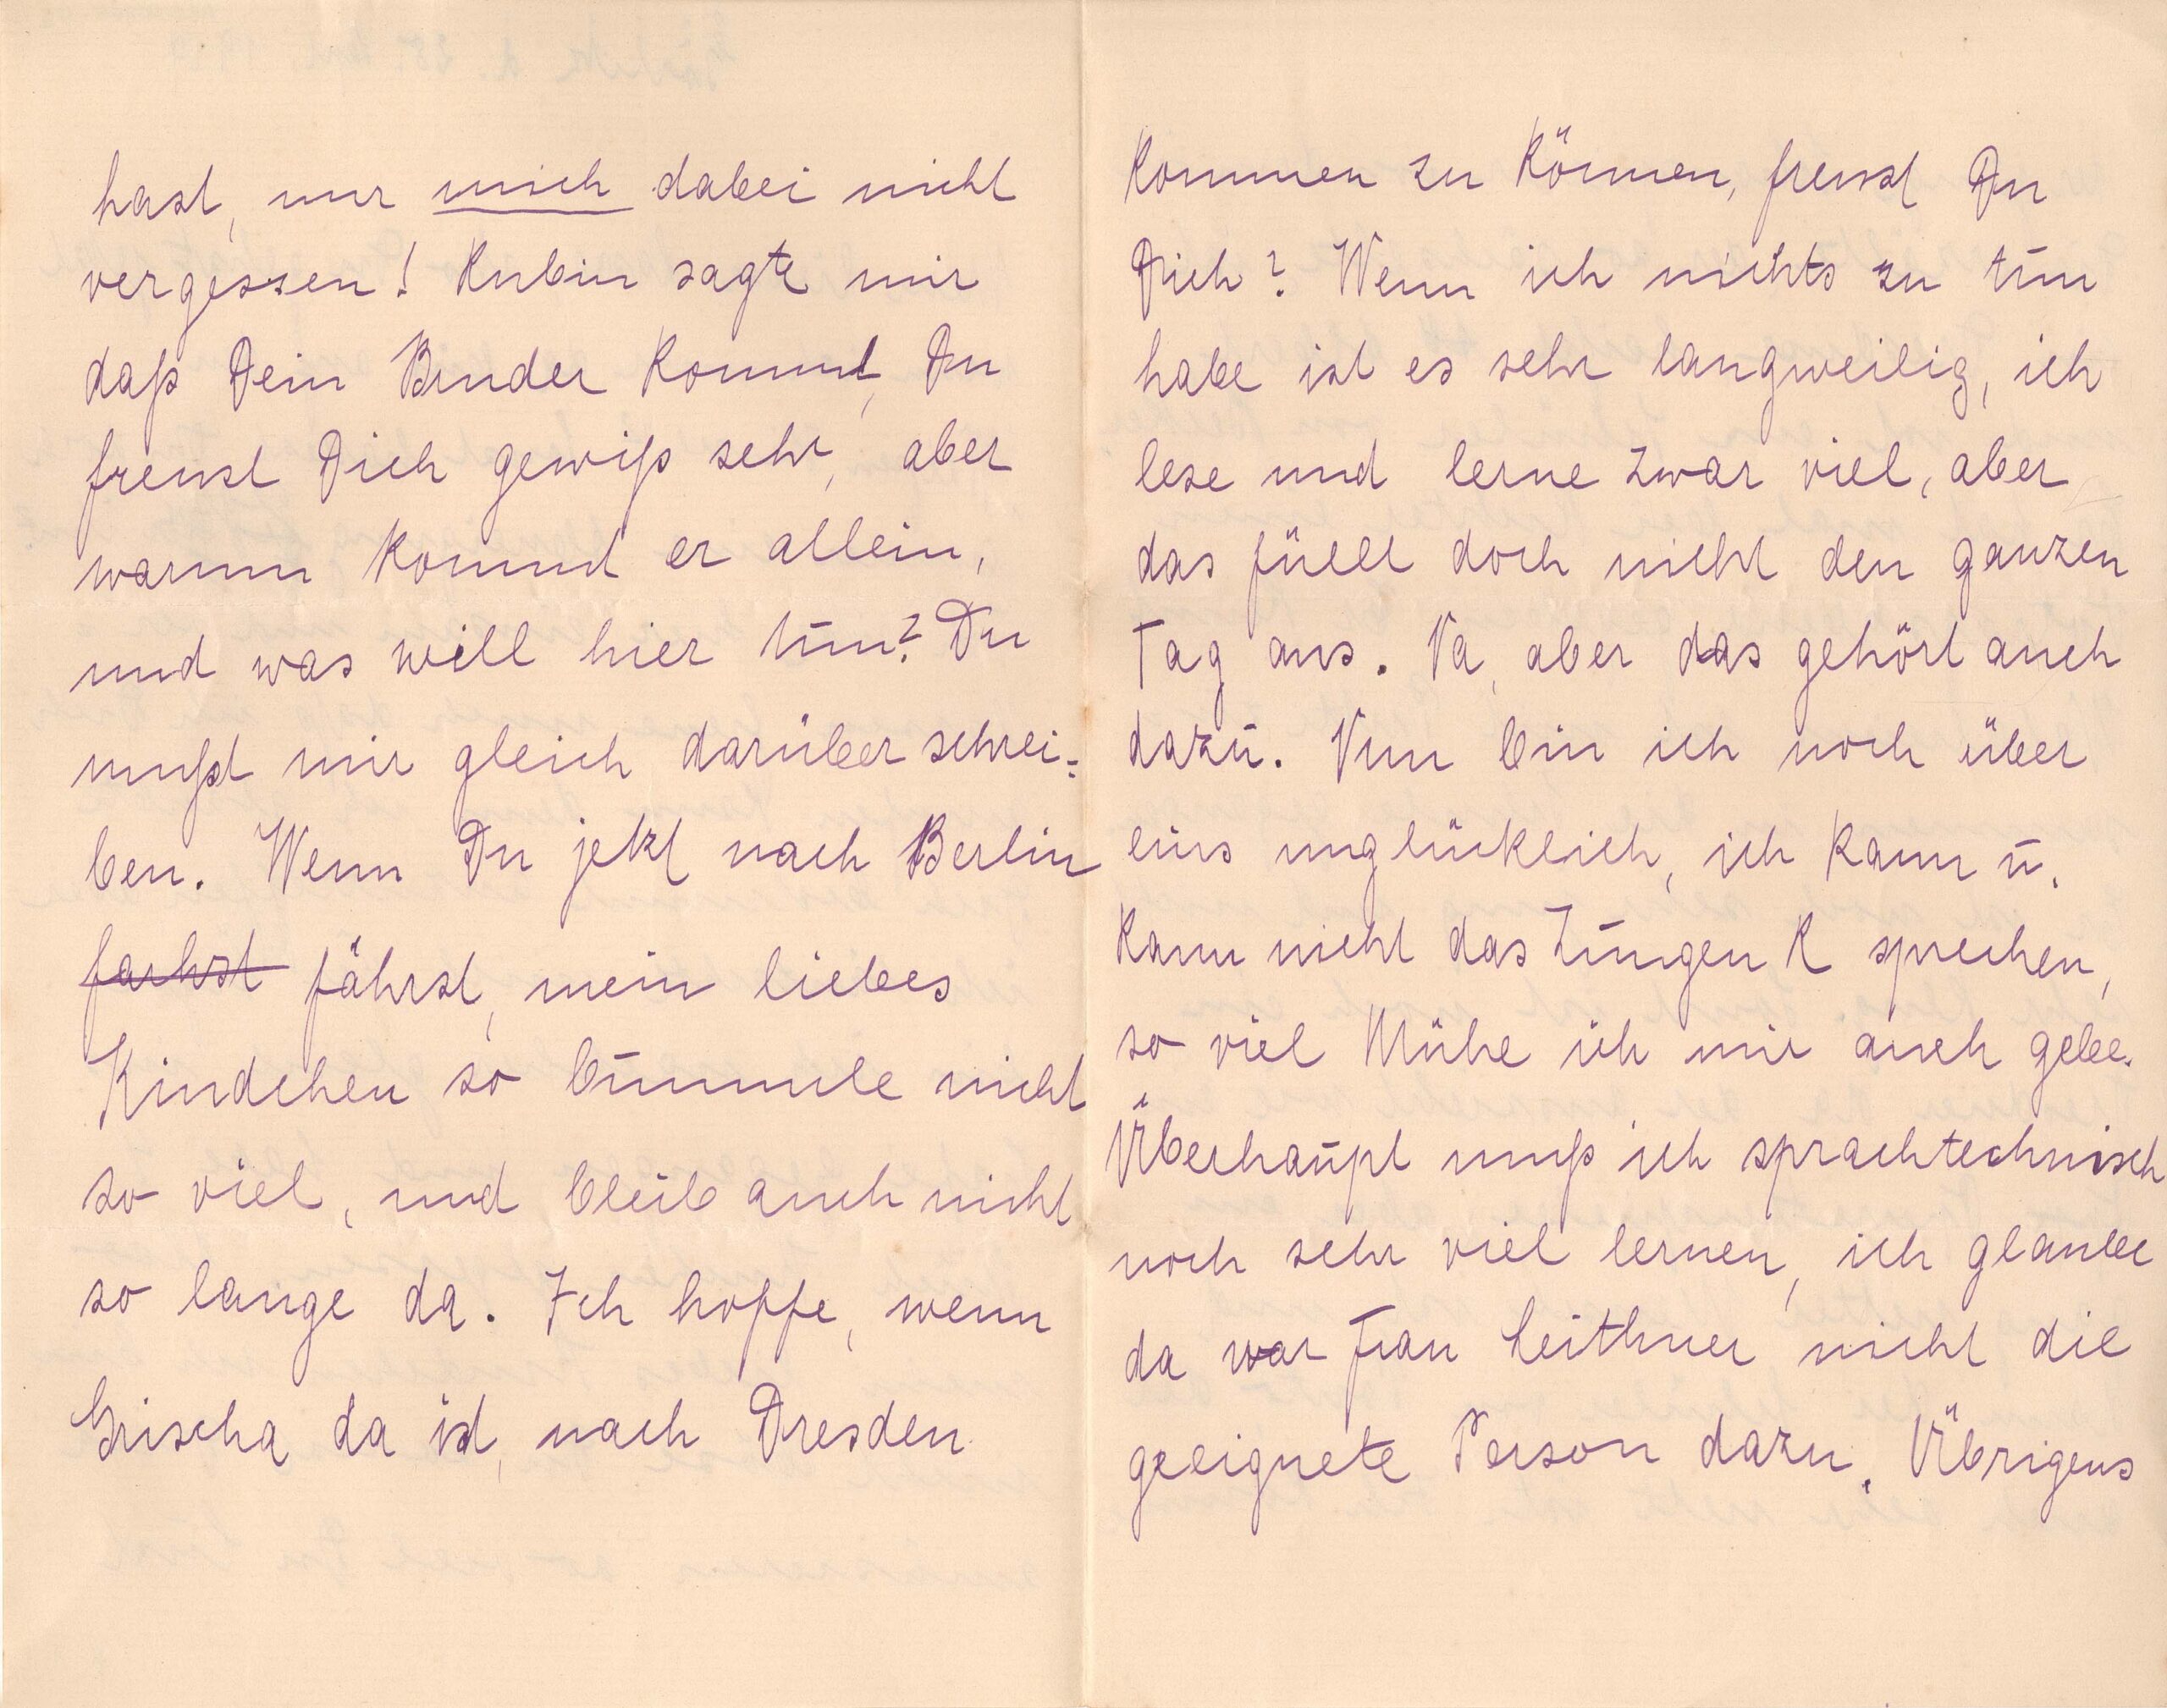 hast, nur mich dabei nicht
vergessen! Rubin sagte mir
daß Dein Bruder kommt, Du
freust Dich gewiß sehr, aber
warum kommt er allein,
und was will hier tun? Du
mußt mir gleich darüber schrei=
ben. Wenn Du jetzt nach Berlin
fährst, mein liebes
Kindchen so bummle nicht
so viel, und bleib auch nicht
so lange da. Ich hoffe, wenn
Grischa da ist, nach Dresden
kommen zu können, freust Du
Dich? Wenn ich nichts zu tun
habe ist es sehr langweilig, ich
lese und lerne zwar viel, aber
das füllt doch nicht den ganzen
Tag aus. Na, aber das gehört auch
dazu. Nun bin ich noch über
eins unglücklich, ich kann u.
kann nicht das Zungen R sprechen,
so viel Mühe ich mir auch gebe.
Überhaupt muß ich sprachtechnisch
noch sehr viel lernen, ich glaube
da war Frau Leithner nicht die
geeignete Person dazu. Übrigens